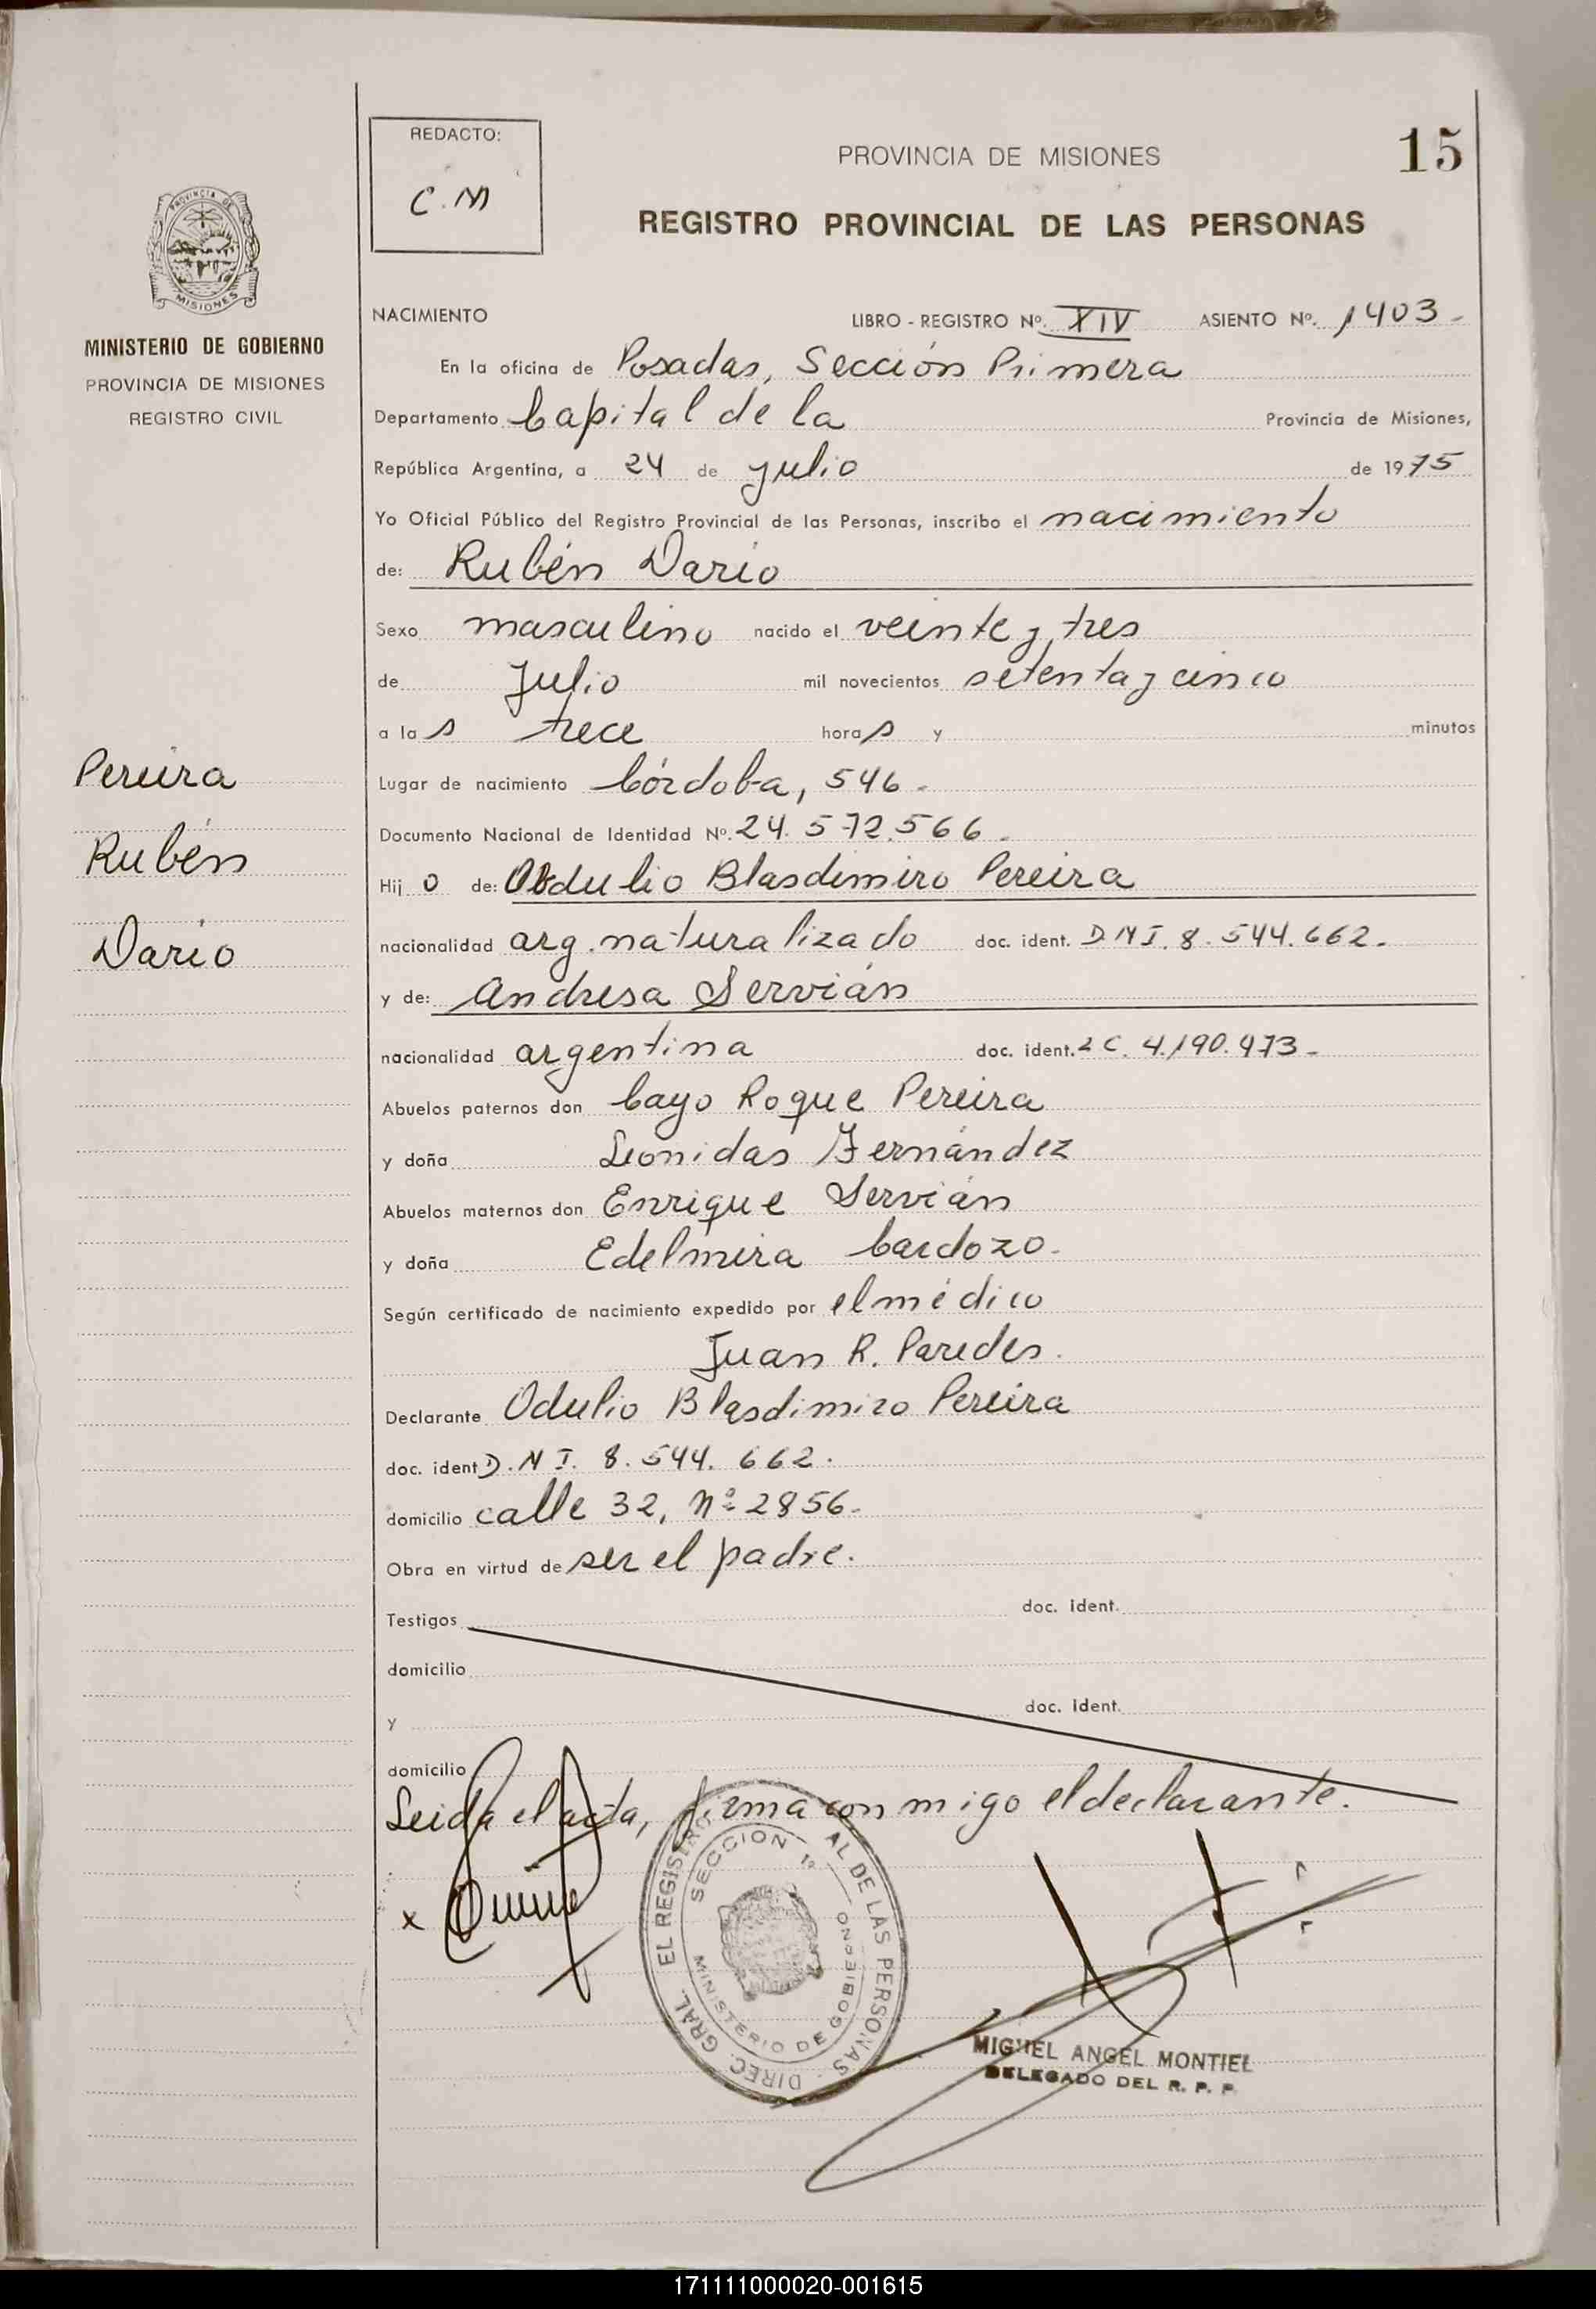 15
REDACTO:
C.M
PROVINCIA DE MISIONES
REGISTRO PROVINCIAL DE LAS PERSONAS
PROVINCIA DE
MISIONES
MINISTERIO DE GOBIERNO
PROVINCIA DE MISIONES
REGISTRO CIVIL
NACIMIENTO LIBRO - REGISTRO Nº. XIV ASIENTO Nº. 1403-
En la oficina de Posadas, Sección Primera
Departamento Capital de la Provincia de Misiones,
República Argentina, a 24 de julio de 1975
Yo Oficial Público del Registro Provincial de las Personas, inscribo el nacimiento
de: Rubén Dario
Sexo masculino nacido el veinte y tres
de Julio mil novecientos setenta y cinco
a las trece horas y minutos
Pereira
Rubén
Dario
Lugar de nacimiento Córdoba, 546.
Documento Nacional de Identidad Nº. 24.572.566.
Hijo de: Obdulio Blasdimiro Pereira
nacionalidad arg. naturalizado doc. ident. D.N.I. 8.544.662.
y de: Andresa Servián
nacionalidad argentina doc. ident. LC. 4.190.973-
Abuelos paternos don Cayo Roque Pereira
y doña Leonidas Fernández
Abuelos maternos don Enrique Servián
y doña Edelmira Cardozo.
Según certificado de nacimiento expedido por el médico
Juan R. Paredes.
Declarante Odulio Blasdimiro Pereira
doc. ident D.N.I. 8.544.662.
domicilio calle 32, Nº 2856.
Obra en virtud de ser el padre.
Testigos doc. ident.
domicilio
y doc. ident.
domicilio
Leida el acta, firma conmigo el declarante.
x
DIREC. GRAL. EL REGISTRO AL DE LAS PERSONAS
SECCION 1º
MINISTERIO DE GOBIERNO
MIGUEL ANGEL MONTIEL
DELEGADO DEL R. P. P.
171111000020-001615